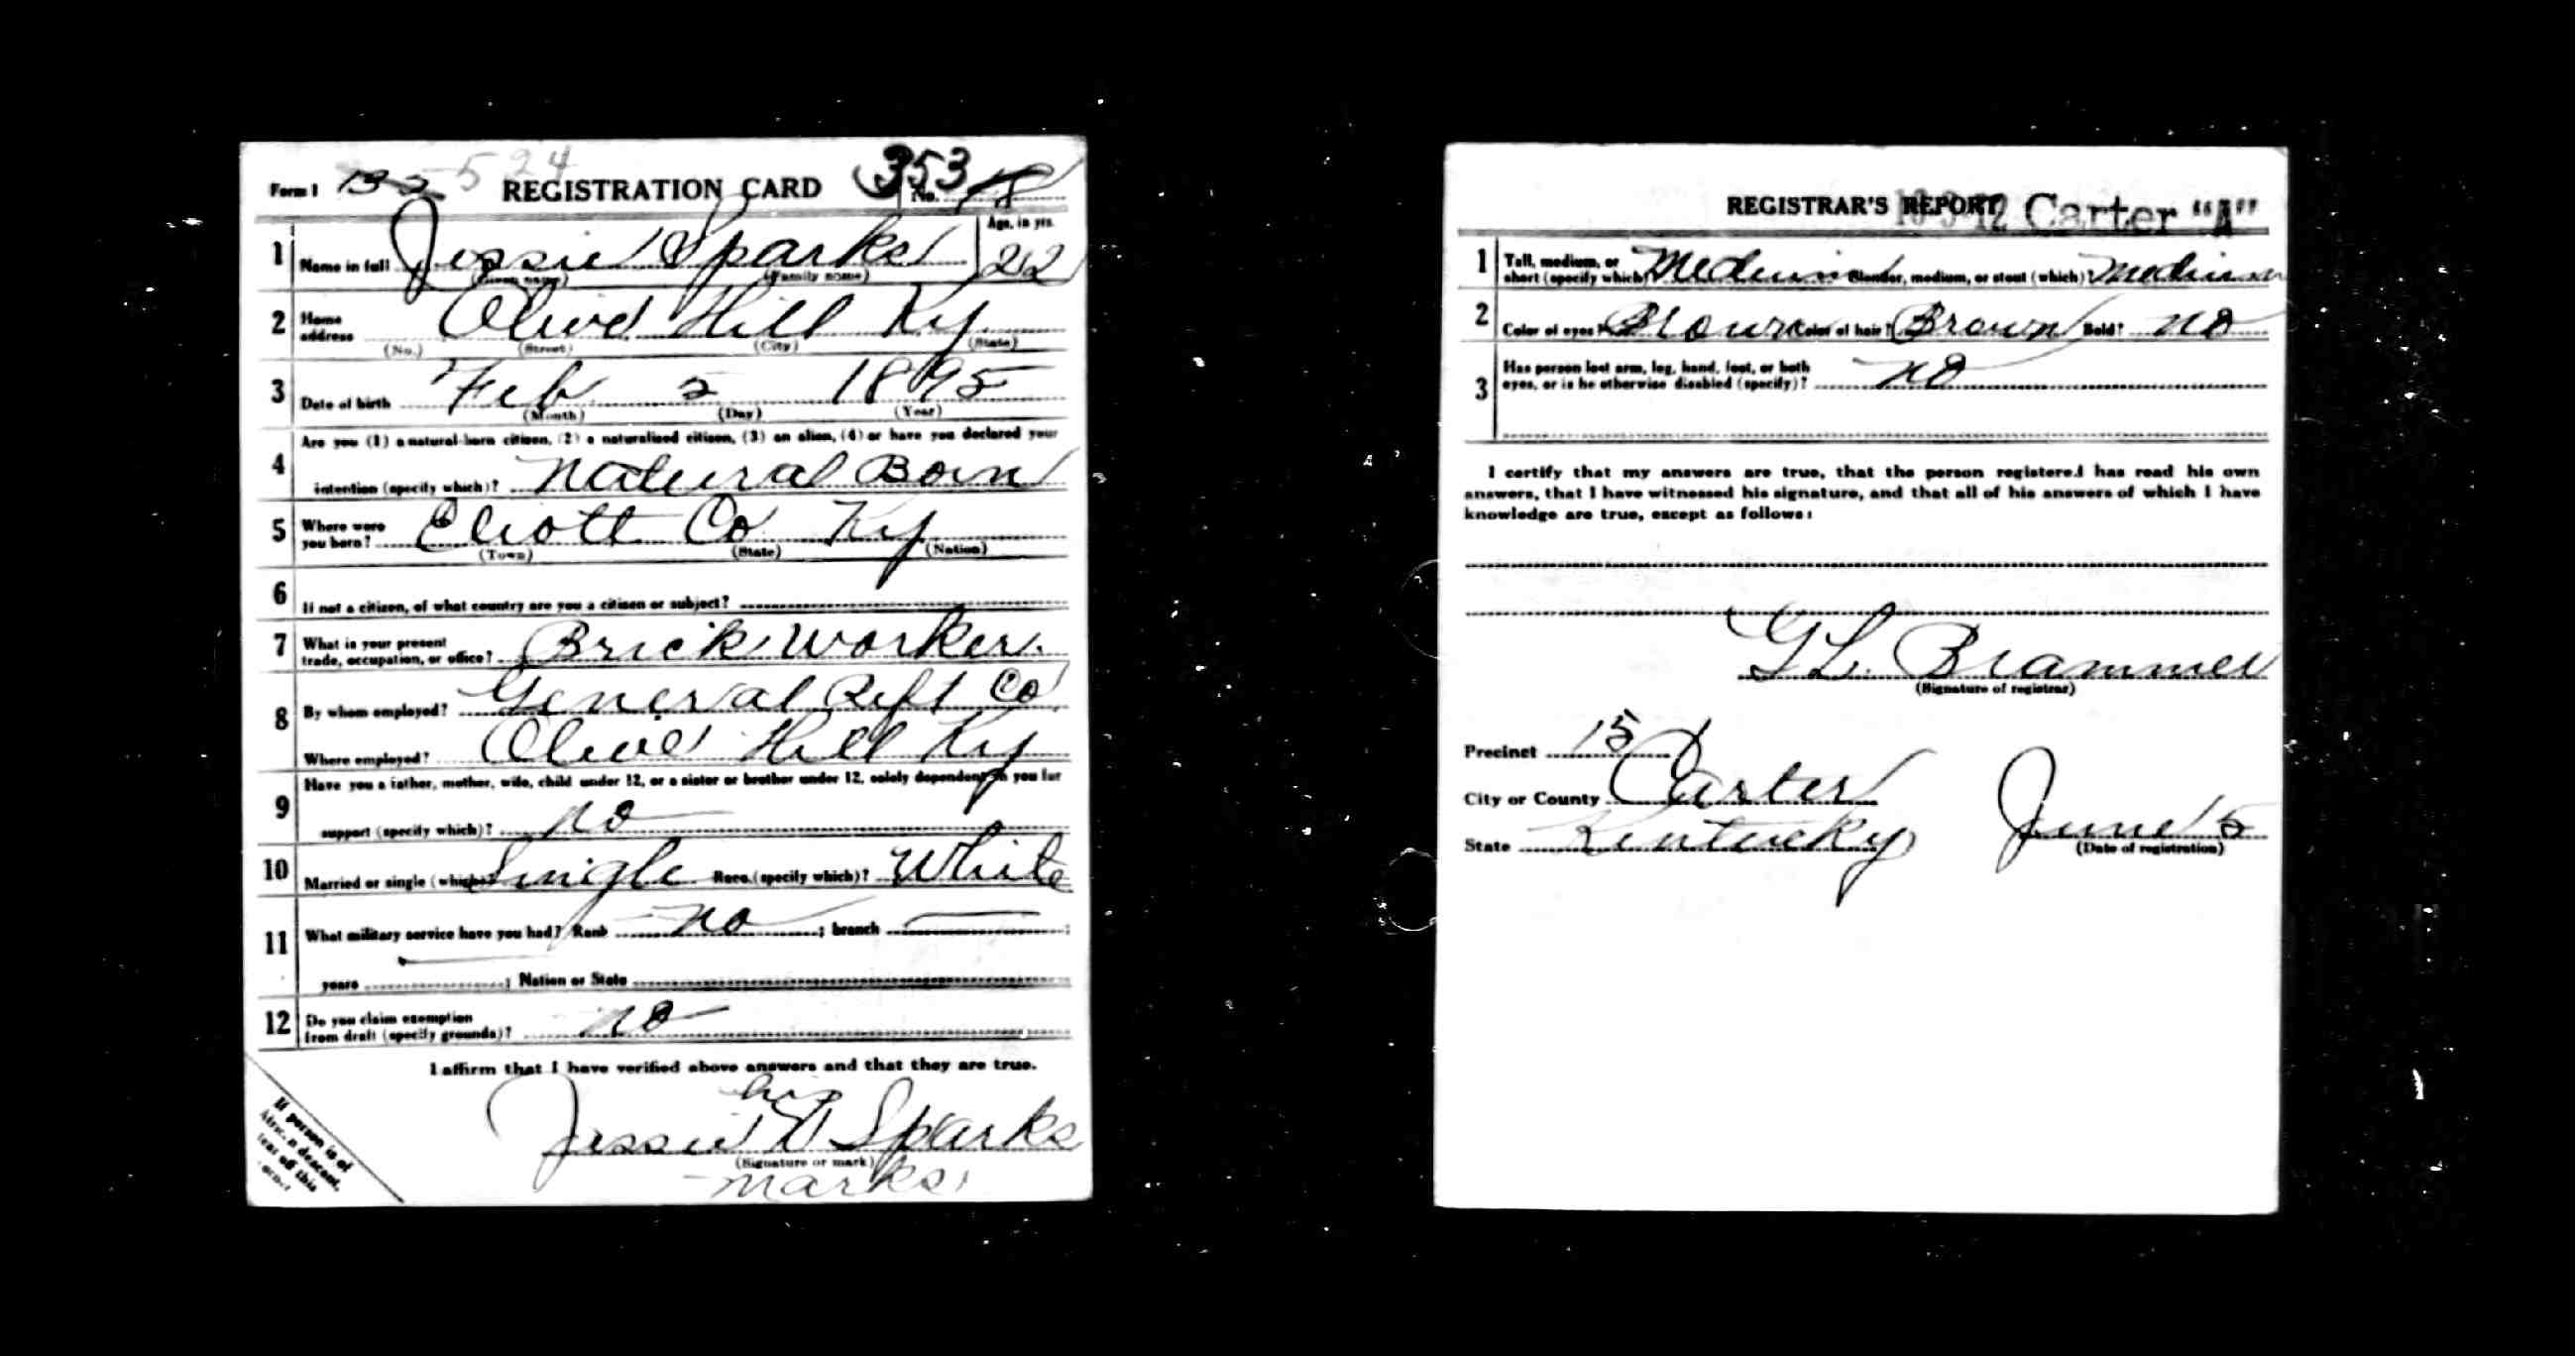 Form 1 132 524 REGISTRATION CARD 353 No. 18
1 Name in full Jessie Sparks Age, in yrs. 22
(Given name) (Family name)
2 Home address Olive Hill Ky
(No.) (Street) (City) (State)
3 Date of birth Feb 2 1895
(Month) (Day) (Year)
4 Are you (1) a natural-born citizen, (2) a naturalized citizen, (3) an alien, (4) or have you declared your
intention (specify which)? Natural Born
5 Where were you born? Eliott Co Ky
(Town) (State) (Nation)
6 If not a citizen, of what country are you a citizen or subject?
7 What is your present trade, occupation, or office? Brick Worker.
8 By whom employed? General Reft Co
Where employed? Olive Hill Ky
9 Have you a father, mother, wife, child under 12, or a sister or brother under 12, solely dependent on you for
support (specify which)? no
10 Married or single (which)? Single Race (specify which)? White
11 What military service have you had? Rank no ; branch ;
years ; Nation or State
12 Do you claim exemption from draft (specify grounds)? no
I affirm that I have verified above answers and that they are true.
his
Jessie Sparks
(Signature or mark)
marks
If person is of
African descent,
tear off this
corner
REGISTRAR'S REPORT 16-3-12 Carter "A"
1 Tall, medium, or short (specify which)? Medium Slender, medium, or stout (which)? Medium
2 Color of eyes? Brown Color of hair? Brown Bald? no
3 Has person lost arm, leg, hand, foot, or both
eyes, or is he otherwise disabled (specify)? no
I certify that my answers are true, that the person registered has read his own
answers, that I have witnessed his signature, and that all of his answers of which I have
knowledge are true, except as follows:
G L. Brammer
(Signature of registrar)
Precinct 15
City or County Carter
State Kentucky June 15
(Date of registration)